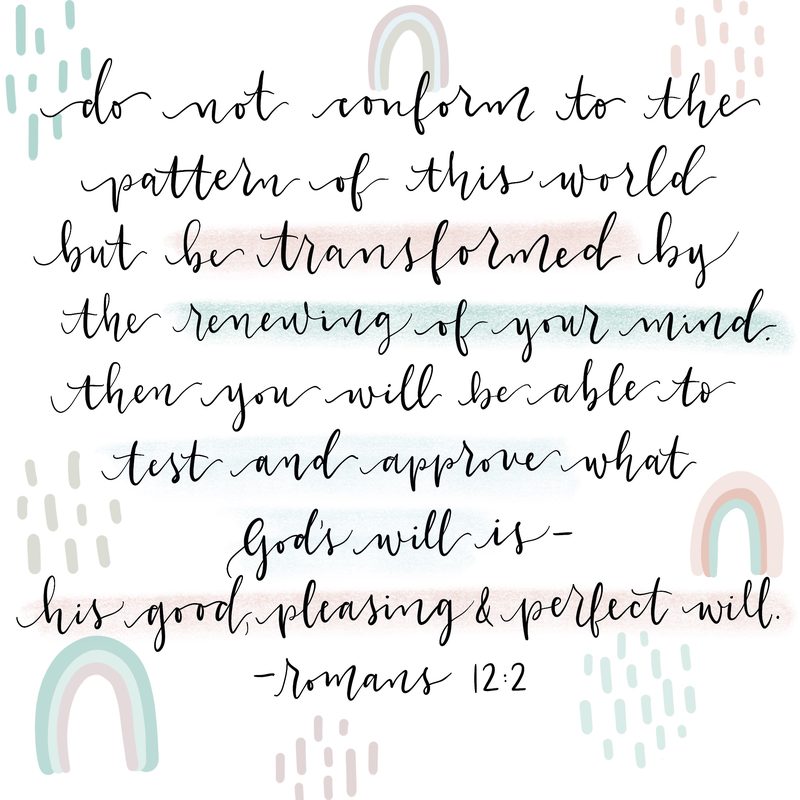 do not conform to the
pattern of this world
but be transformed by
the renewing of your mind.
then you will be able to
test and approve what
God's will is -
his good, pleasing & perfect will.
- romans 12:2